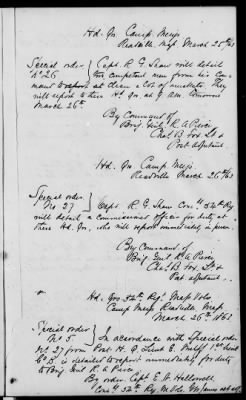 Hd. Qrs Camp Meigs
Readville Mass March 25th/63
Special order
No 26
Capt. R. G. Shaw will detail
competent men from his Com
mand to report at
They
will report to these Hd. Qrs at 9 A.M. tomorrow
March 26th
By Command of
Brig. Genl R A Peirce
Chas B Fox Lt &
Post Adjutant
Hd. Qrs Camp Meigs
Readville March 26th/63
Special order
No 27
Capt R. G. Shaw Com'g 54th Reg
will detail a commissioned officer for duty at
these Hd. Qrs, who will report immediately in person
By Command of
Brig. Genl R A Peirce
Chas B Fox Lt &
Post Adjutant
Hd. Qrs 54th Reg Mass Vols
Camp Meigs Readville Mass
March 26th 1863
Special order
No 5
In accordance with special order
No 27 from Post Hd. Qrs Lieut E.
is detailed to report immediately for duty
to Brig Genl R A Peirce
By order Capt E N Hallowell
Com'g 54th Reg M. Vols